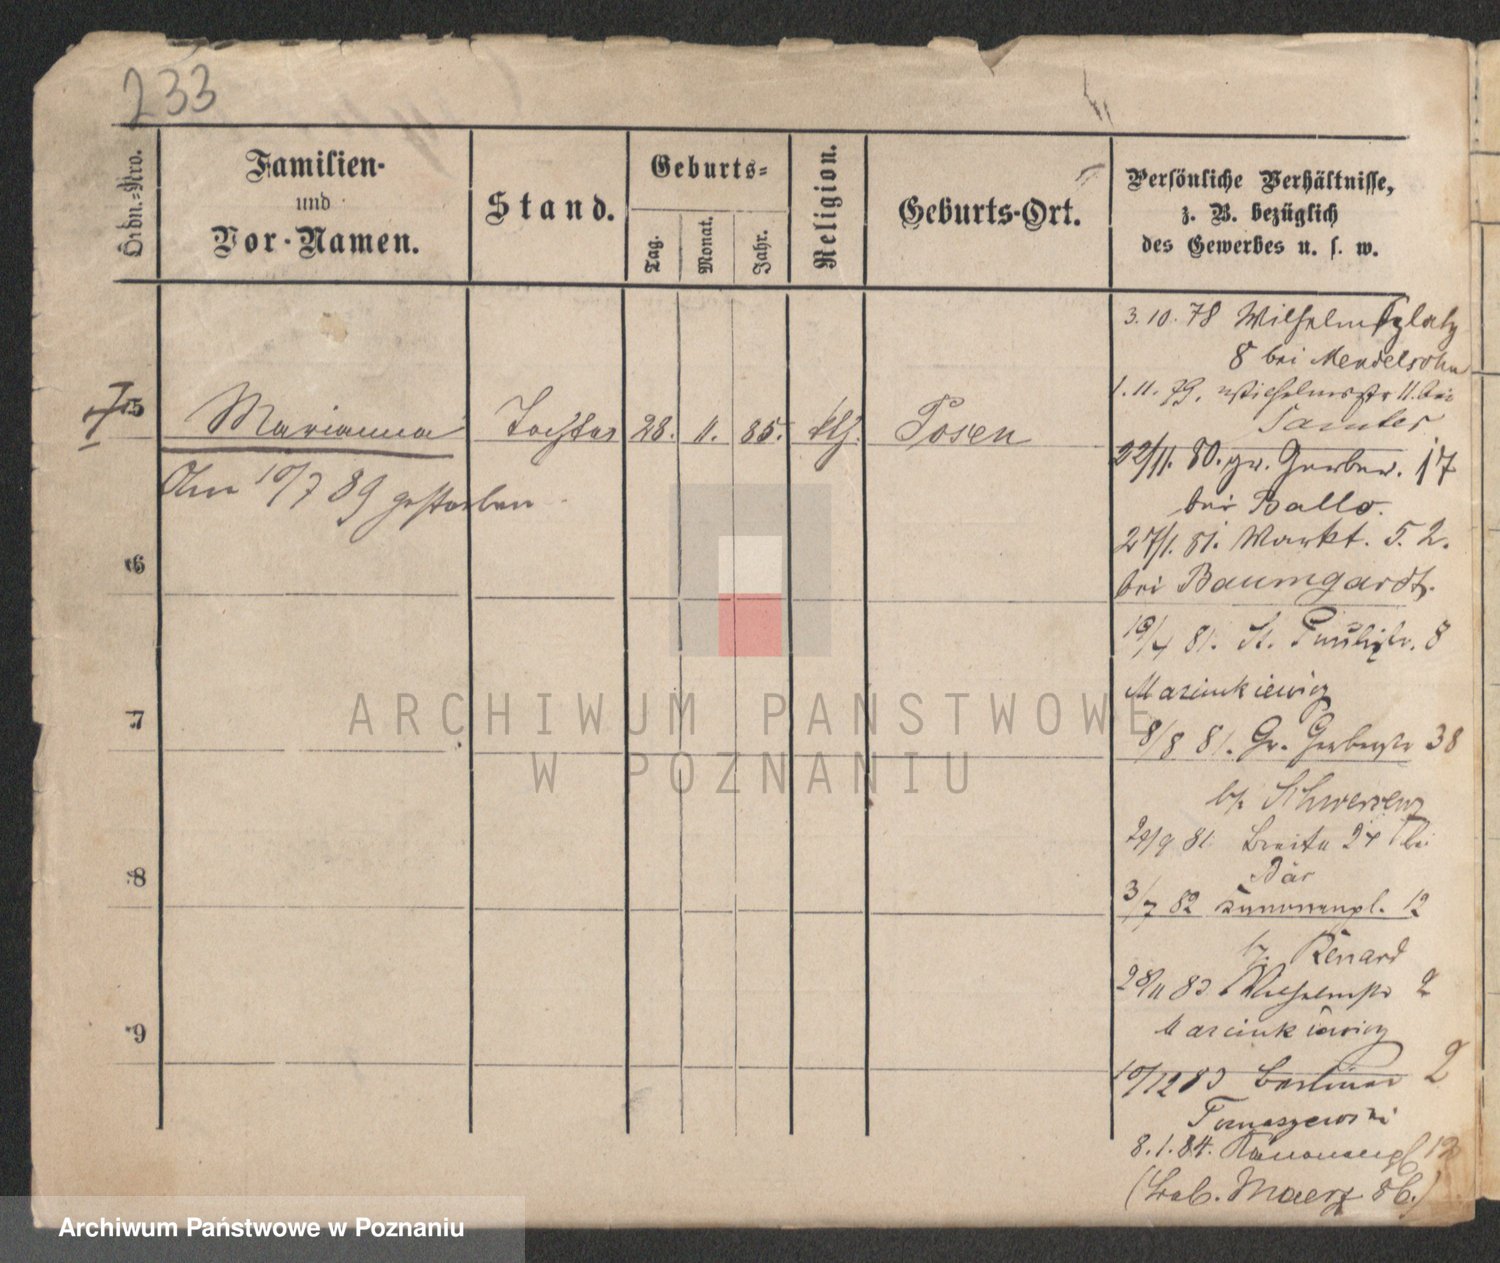 233
Ordn.-Nro.
Familien-
und
Vor-Namen.
Stand.
Geburts-
Tag.
Monat.
Jahr.
Religion.
Geburts-Ort.
Persönliche Verhältnisse,
z. B. bezüglich
des Gewerbes u. s. w.
3.10.78 Wilhelmsplatz
8 bei Mendelsohn
1.11.79. Wilhelmsstr 11. bei
Samter
5 Marianna Tochter 28. 11. 85. kth. Posen
22/11. 80. gr. Gerber. 17
Am 10/7 89 gestorben
bei Ballo.
27/1. 81. Markt. 5. 2.
6
bei Baumgardt.
19/4 81. St. 8
Marcinkiewicz
7
8/8 81. Gr. Gerberstr 38
b/. Schwersenz
29/9 81 Breite 24 bei
Bär
8
3/7 82 Kanonenpl. 12
b/. Renard
28/11 83 Wilhelmstr 2
Marcinkiewicz
9
10/12 83 Berliner 2
Tomaszewski
8.1.84. Kanonenpl 12
ARCHIWUM PAŃSTWOWE
W POZNANIU
Archiwum Państwowe w Poznaniu